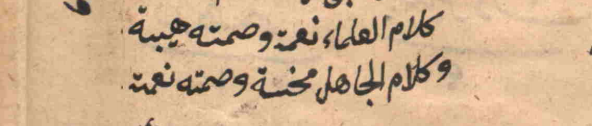 كلام العلماء نعمة وصمته هيبة
وكلام الجاهل محنة وصمته نعمة